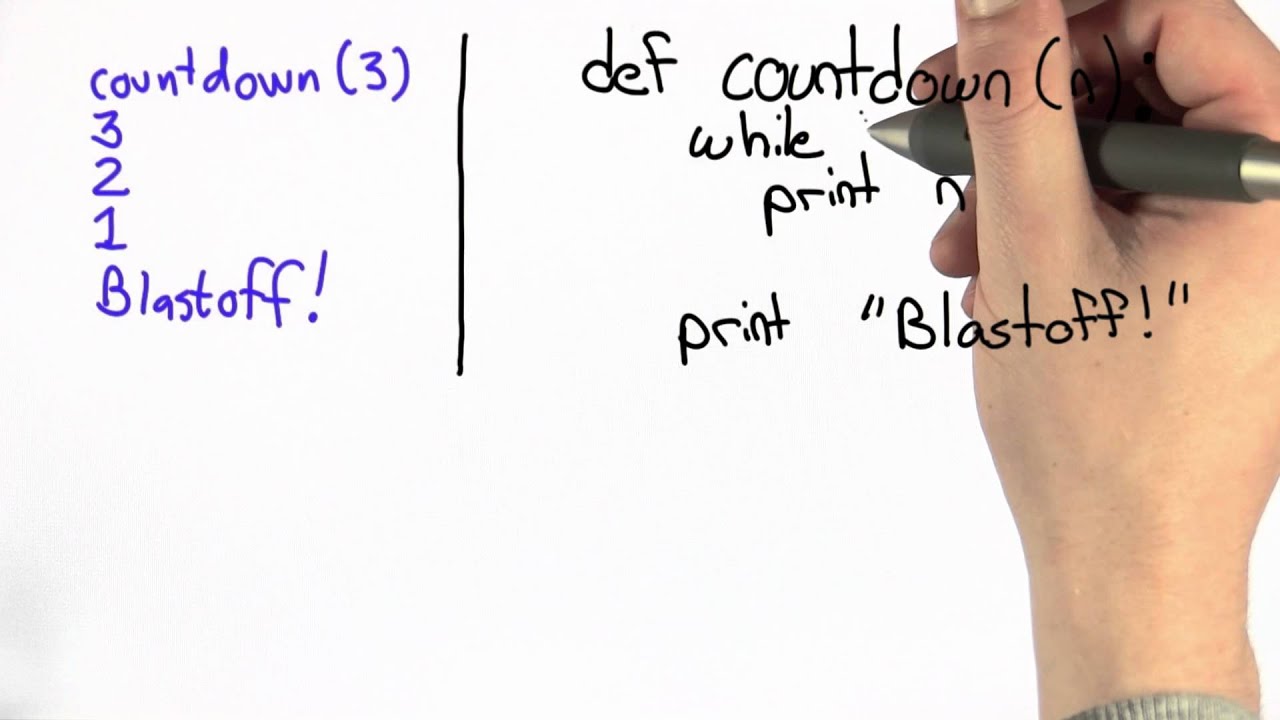 countdown (3)
3
2
1
Blastoff!
def countdown (n):
while
print n
print "Blastoff!"